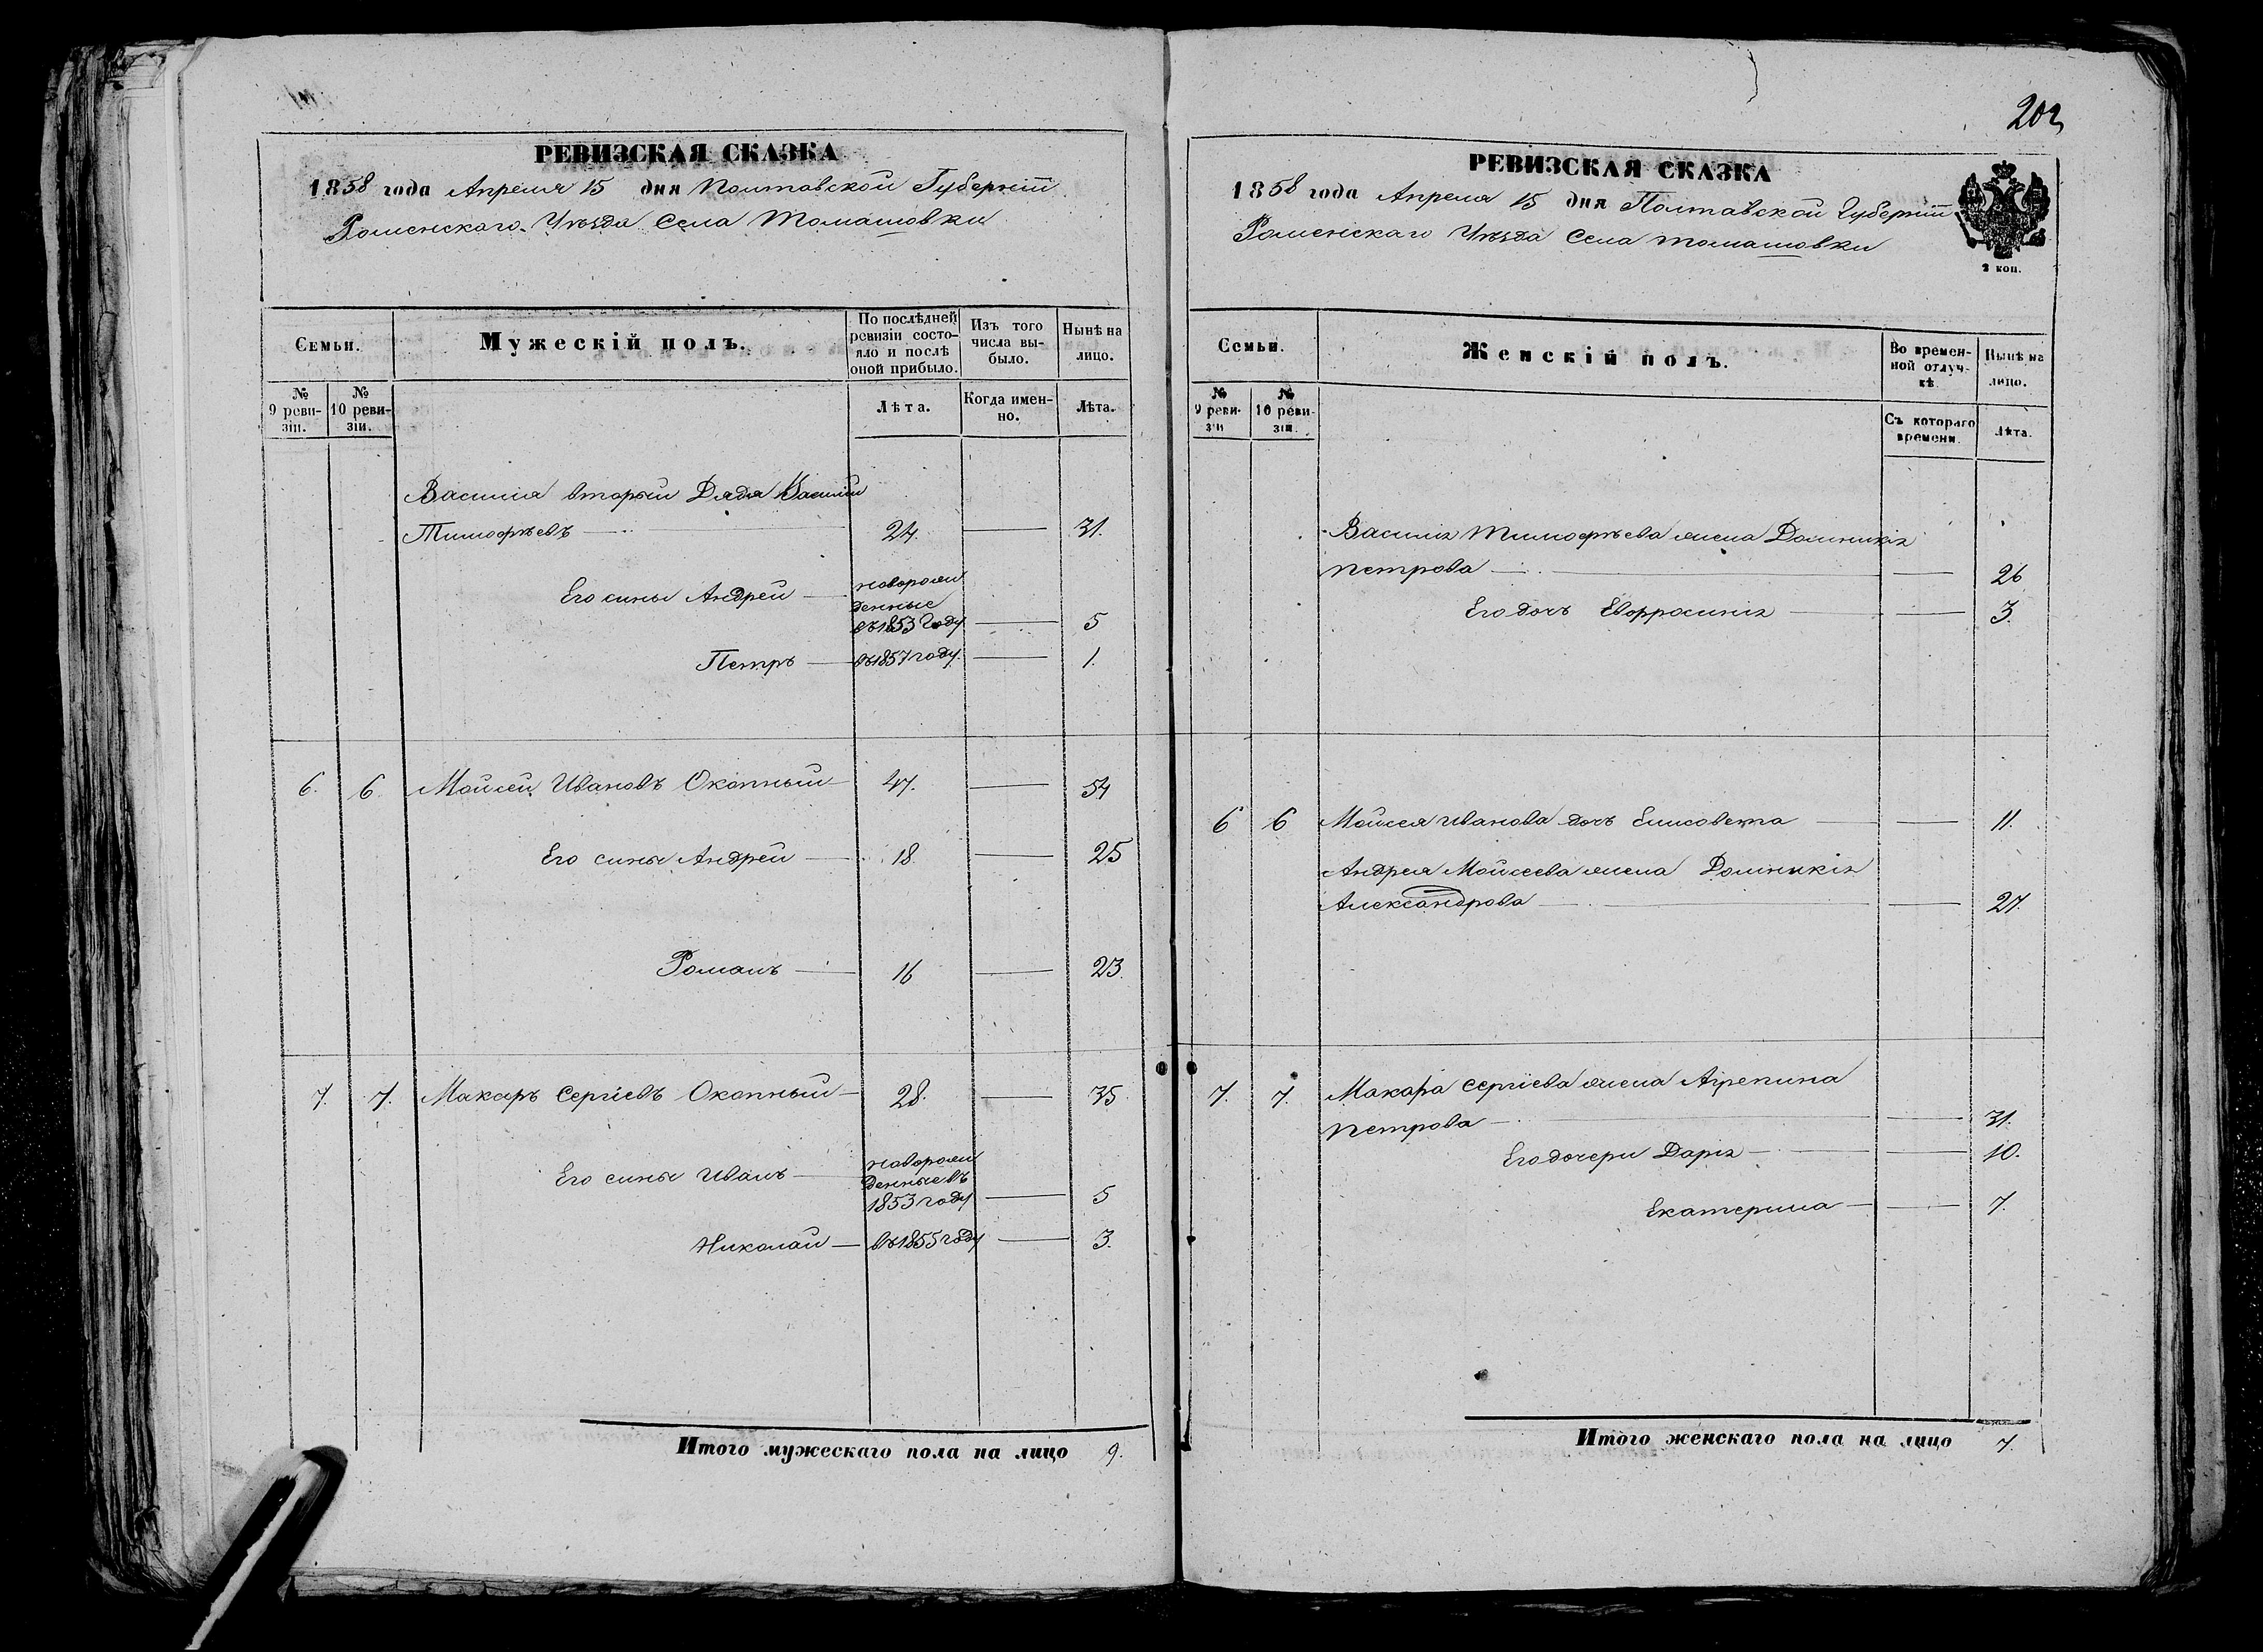 202
РЕВИЗСКАЯ СКАЗКА
1858 года Апреля 15 дня Полтавской Губерніи
Роменскаго Уѣзда Села Томашовки
Семьи.
Мужескій полъ.
По послѣдней ревизіи состо-
яло и послѣ оной прибыло.
Изъ того числа вы-
было.
Нынѣ на лицо.
№ 9 реви-
зіи.
№ 10 реви-
зіи.
Лѣта.
Когда имен-
но.
Лѣта.
Василія вторый Дядя Василій
Тимофѣевъ 24. 31.
Его сыны Андрей новорож
денные
въ 1853 Году 5
Петръ въ 1857 году. 1.
6. 6. Мойсей Ивановъ Окопный 47. 54
Его сыны Андрей 18. 25
Романъ 16 23.
7. 7. Макаръ Сергіевъ Окопный 28. 35.
Его сыны Иванъ новорож
денные въ
1853 году 5
Николай въ 1855 году 3.
Итого мужескаго пола на лицо 9.
РЕВИЗСКАЯ СКАЗКА
1858 года Апреля 15 дня Полтавской Губерніи
Роменскаго Уѣзда Села Томашовки
2 коп.
Семьи.
Женскій полъ.
Во времен-
ной отлуч-
кѣ.
Нынѣ на лицо.
№ 9 реви-
зіи
№ 10 реви-
зіи.
Съ котораго времени.
Лѣта.
Василія Тимофѣева жена Домникія
Петрова 26
Его дочь Евфросинія 3.
6 6 Мойсея Иванова дочь Елисовета 11.
Андрея Мойсеева жена Домникія
Александрова 27.
7. 7. Макара Сергіева жена Агрепина
Петрова 31.
Его дочери Дарія 10.
Екатерина 7.
Итого женскаго пола на лицо 7.